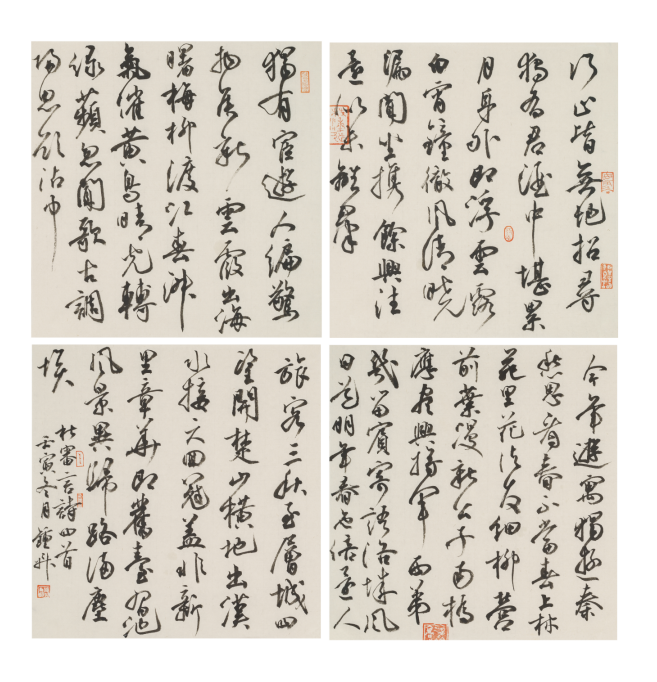 行止皆無地招尋
獨有君酒中堪累
月身外即浮雲露
白宵鐘徹風清曉
漏聞坐攜餘興往
還似未離群
獨有宦遊人偏驚
物候新雲霞出海
曙梅柳渡江春淑
氣催黃鳥晴光轉
綠蘋忽聞歌古調
歸思欲沾巾
今年遊寓獨遊秦
愁思看春不當春上林
苑里花徒發細柳營
前葉漫新公子南橋
應盡興將軍西第
幾留賓寄語洛城風
日道明年春色倍還人
旅客三秋至層城四
望開楚山橫地出漢
水接天回冠蓋非新
里章華即舊臺習池
風景異歸路滿塵
埃
杜審言詩四首
壬寅冬月鍾